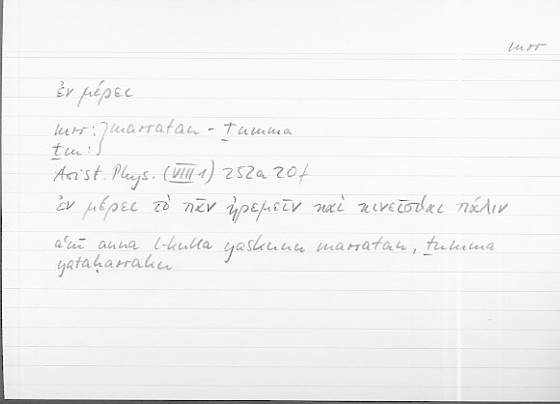 mrr
ἐν μέρει
mrr: } marratan - ṯumma
ṯm: }
Arist. Phys. (VIII 1) 252a 20f
ἐν μέρει τὸ πᾶν ἠρεμεῖν καὶ κινεῖσθαι πάλιν
anna l-kulla yaskunu marratan, ṯumma
yataḥarraku